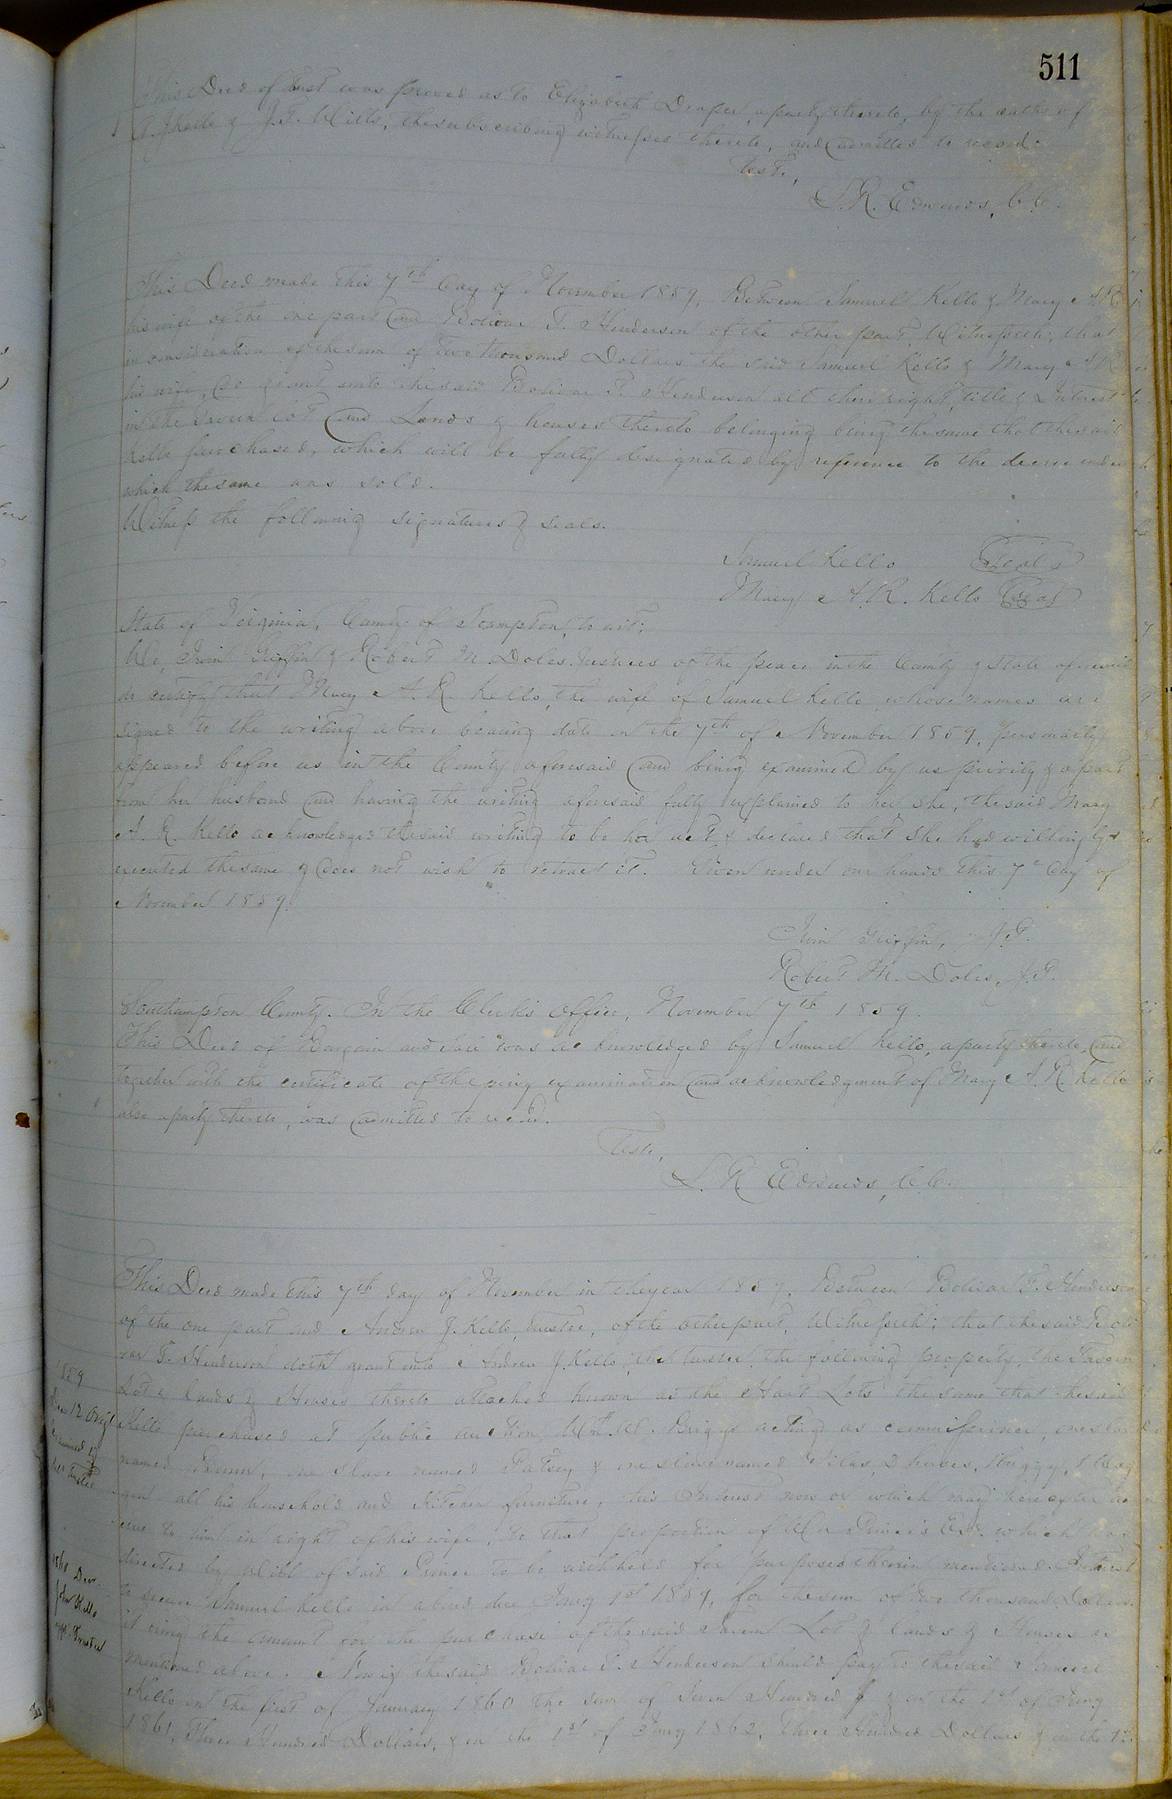 511
This Deed of trust was proved as to Elizabeth Draper, a party thereto, by the oaths of
A. J. Kello & J. T. Wills, the subscribing witnesses thereto, and admitted to record.
Test,
L. R. Edwards, C. C.
This Deed made this 7th day of November 1859, Between Samuel Kello & Mary A R
his wife of the one part and Bolivar T. Henderson of the other part, Witnesseth, that
in consideration of the sum of two thousand Dollars the said Samuel Kello & Mary A R
his wife, do grant unto the said Bolivar T. Henderson all their right, title & Interest
in the Tavern Lot and Lands & houses thereto belonging being the same that the said
Kello purchased, which will be fully designated by reference to the decree under
which the same was sold.
Witness the following signatures & seals.
Samuel Kello Seal
Mary A. R. Kello Seal
State of Virginia, County of Southampton, to wit:
We, Irvin Griffin & Robert M. Doles Justices of the peace in the County & State aforesaid
do certify that Mary A. R. Kello, the wife of Samuel Kello whose names are
signed to the writing above bearing date on the 7th of November 1859, personally
appeared before us in the County aforesaid and being examined by us privily & apart
from her husband and having the writing aforesaid fully explained to her she, the said Mary
A. R. Kello acknowledged the said writing to be her act & declared that she had willingly
executed the same & does not wish to retract it. Given under our hands this 7th day of
November 1859.
Irvin Griffin, J.P.
Robert M. Doles, J.P.
Southampton County. In the Clerk's Office, November 7th 1859.
This Deed of Bargain and Sale was acknowledged by Samuel Kello, a party thereto, and
together with the certificate of the privy examination and acknowledgment of Mary A. R. Kello
also a party thereto, was admitted to record.
Teste,
L. R. Edwards, C. C.
This Deed made this 7th day of November in the year 1859, Between Bolivar T. Henderson
of the one part and Andrew J. Kello, trustee, of the other part, Witnesseth; that the said Boli
var T. Henderson doth grant unto Andrew J. Kello, the trustee, the following property, the Tavern
Lot & lands & Houses thereto attached known as the Hart Lots the same that the said
Kello purchased at public auction, Wm. W. Briggs acting as commissioner, one slave
named one slave named Patsey & one slave named Silas, 2 horses, 1 buggy, 1 wag
gon all his household and kitchen furniture, his Interest now or which may hereafter ac
crue to him in right of his wife, to that proportion of Prince's Est. which was
directed by Will of said Prince to be withheld for purposes therein mentioned. In trust
to secure Samuel Kello in a bond due Jany 1st 1859, for the sum of two thousand Dollars
it being the amount for the purchase of the said Tavern Lot & lands & Houses as
mentioned above. Now if the said Bolivar T. Henderson should pay to the said Samuel
Kello on the first of January 1860 the sum of Seven Hundred $ & on the 1st of Jany
1861, Three Hundred Dollars, & on the 1st of Jany 1862, Three Hundred Dollars & on the 1st
1859
Dec 12 Orig
examined &
del. Trustee
1860 Dec.
John Kello
Trustee